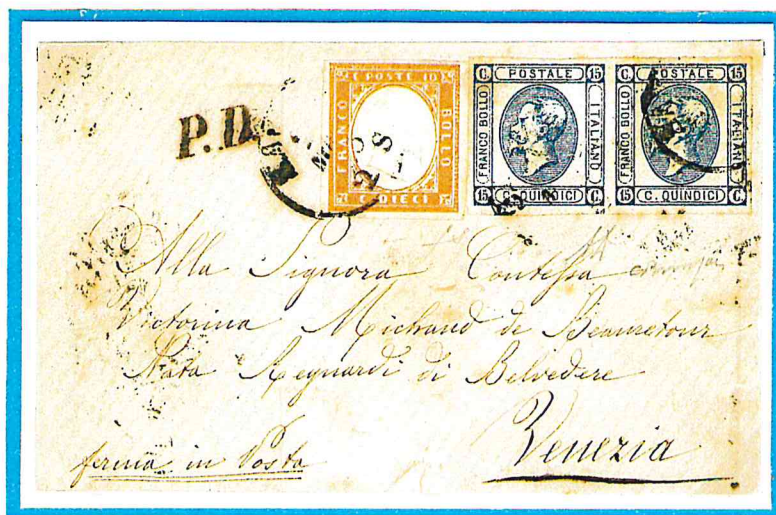 P.D.
POSTE 10
FRANCO
BOLLO
C. DIECI
C. POSTALE 15
FRANCO BOLLO
ITALIANO
15 C. QUINDICI C.
C. POSTALE 15
FRANCO BOLLO
ITALIANO
15 C. QUINDICI C.
Alla Signora Contessa
Victorina Michaud de Beauretour
Nata Regnardi di Belvedere
Venezia
ferma in Posta